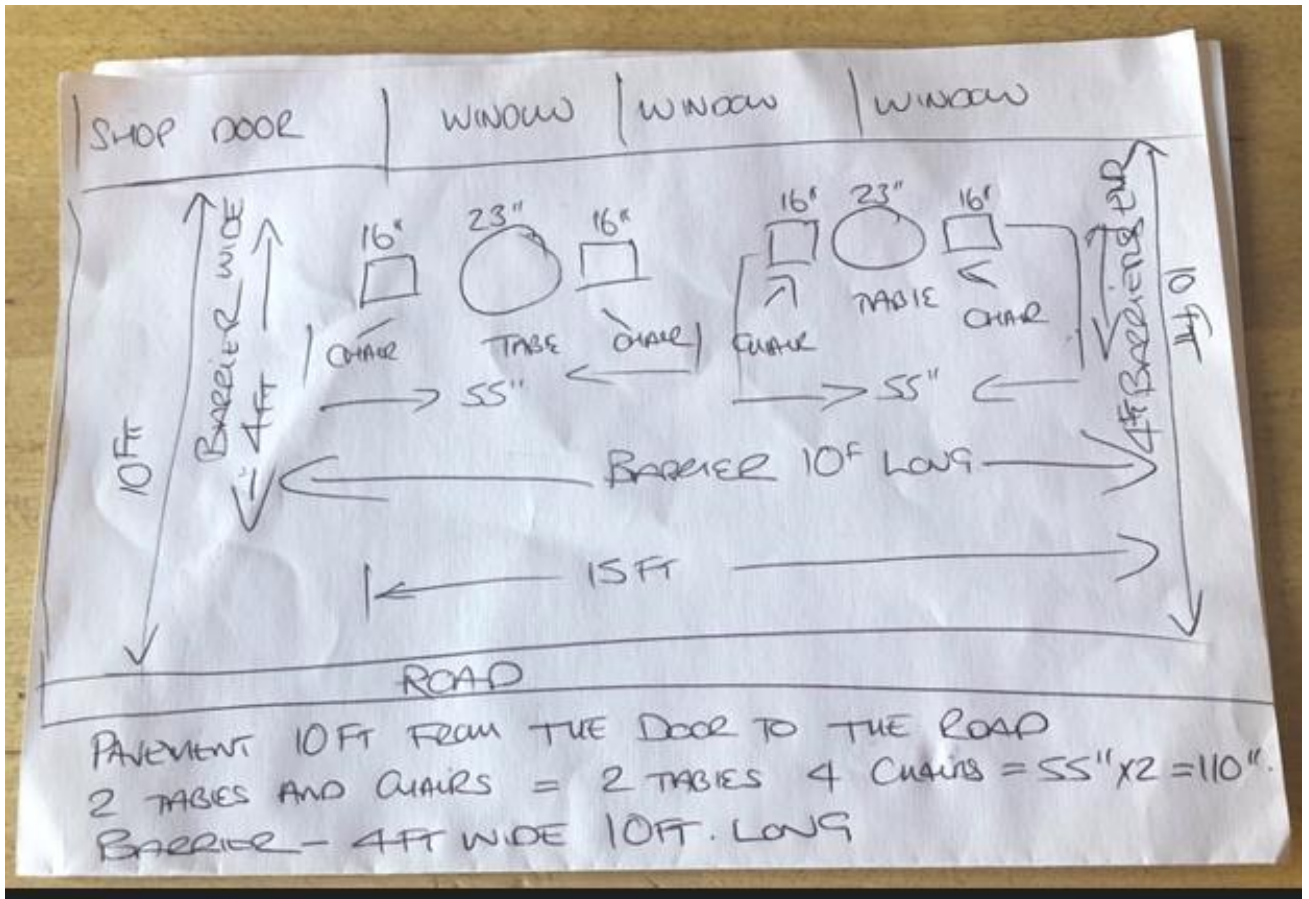 SHOP DOOR WINDOW WINDOW WINDOW
16" 23" 16" 16" 23" 16"
BARRIER WIDE
4FT
10FT
CHAIR TABE CHAIR CHAIR TABIE CHAIR
55" 55"
4ft BARRIER
10ft
BARRIER 10F LONG
15FT
ROAD
PAVEMENT 10FT FROM THE DOOR TO THE ROAD
2 TABIES AND CHAIRS = 2 TABIES 4 CHAIRS = 55"X2 = 110".
BARRIER - 4FT WIDE 10FT. LONG